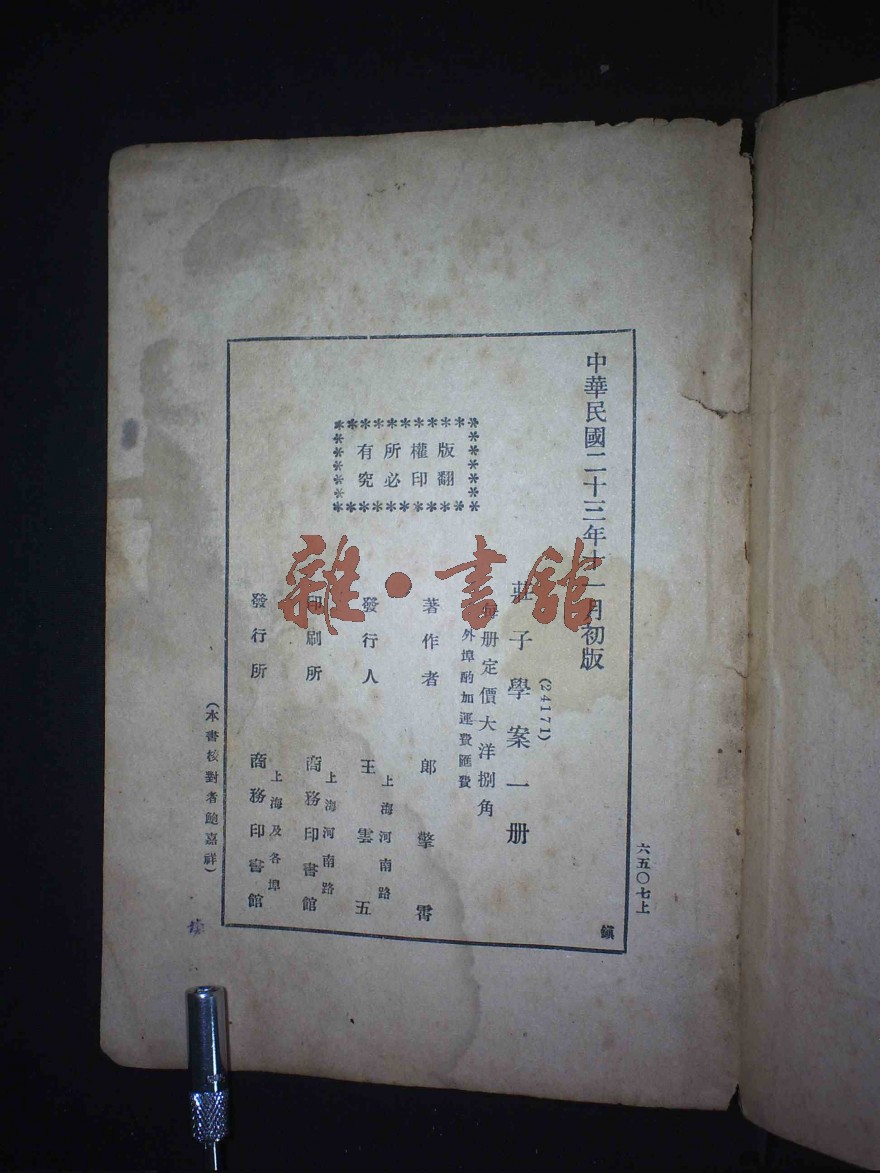 六五〇七上
中華民國二十三年十一月初版
鎭
(24171)
莊子學案一册
每册定價大洋捌角
外埠酌加運費匯費
版權所有
翻印必究
著作者 郎擎霄
上海河南路
發行人 王雲五
上海河南路
印刷所 商務印書館
上海及各埠
發行所 商務印書館
(本書校對者鮑嘉祥)
雜·書館